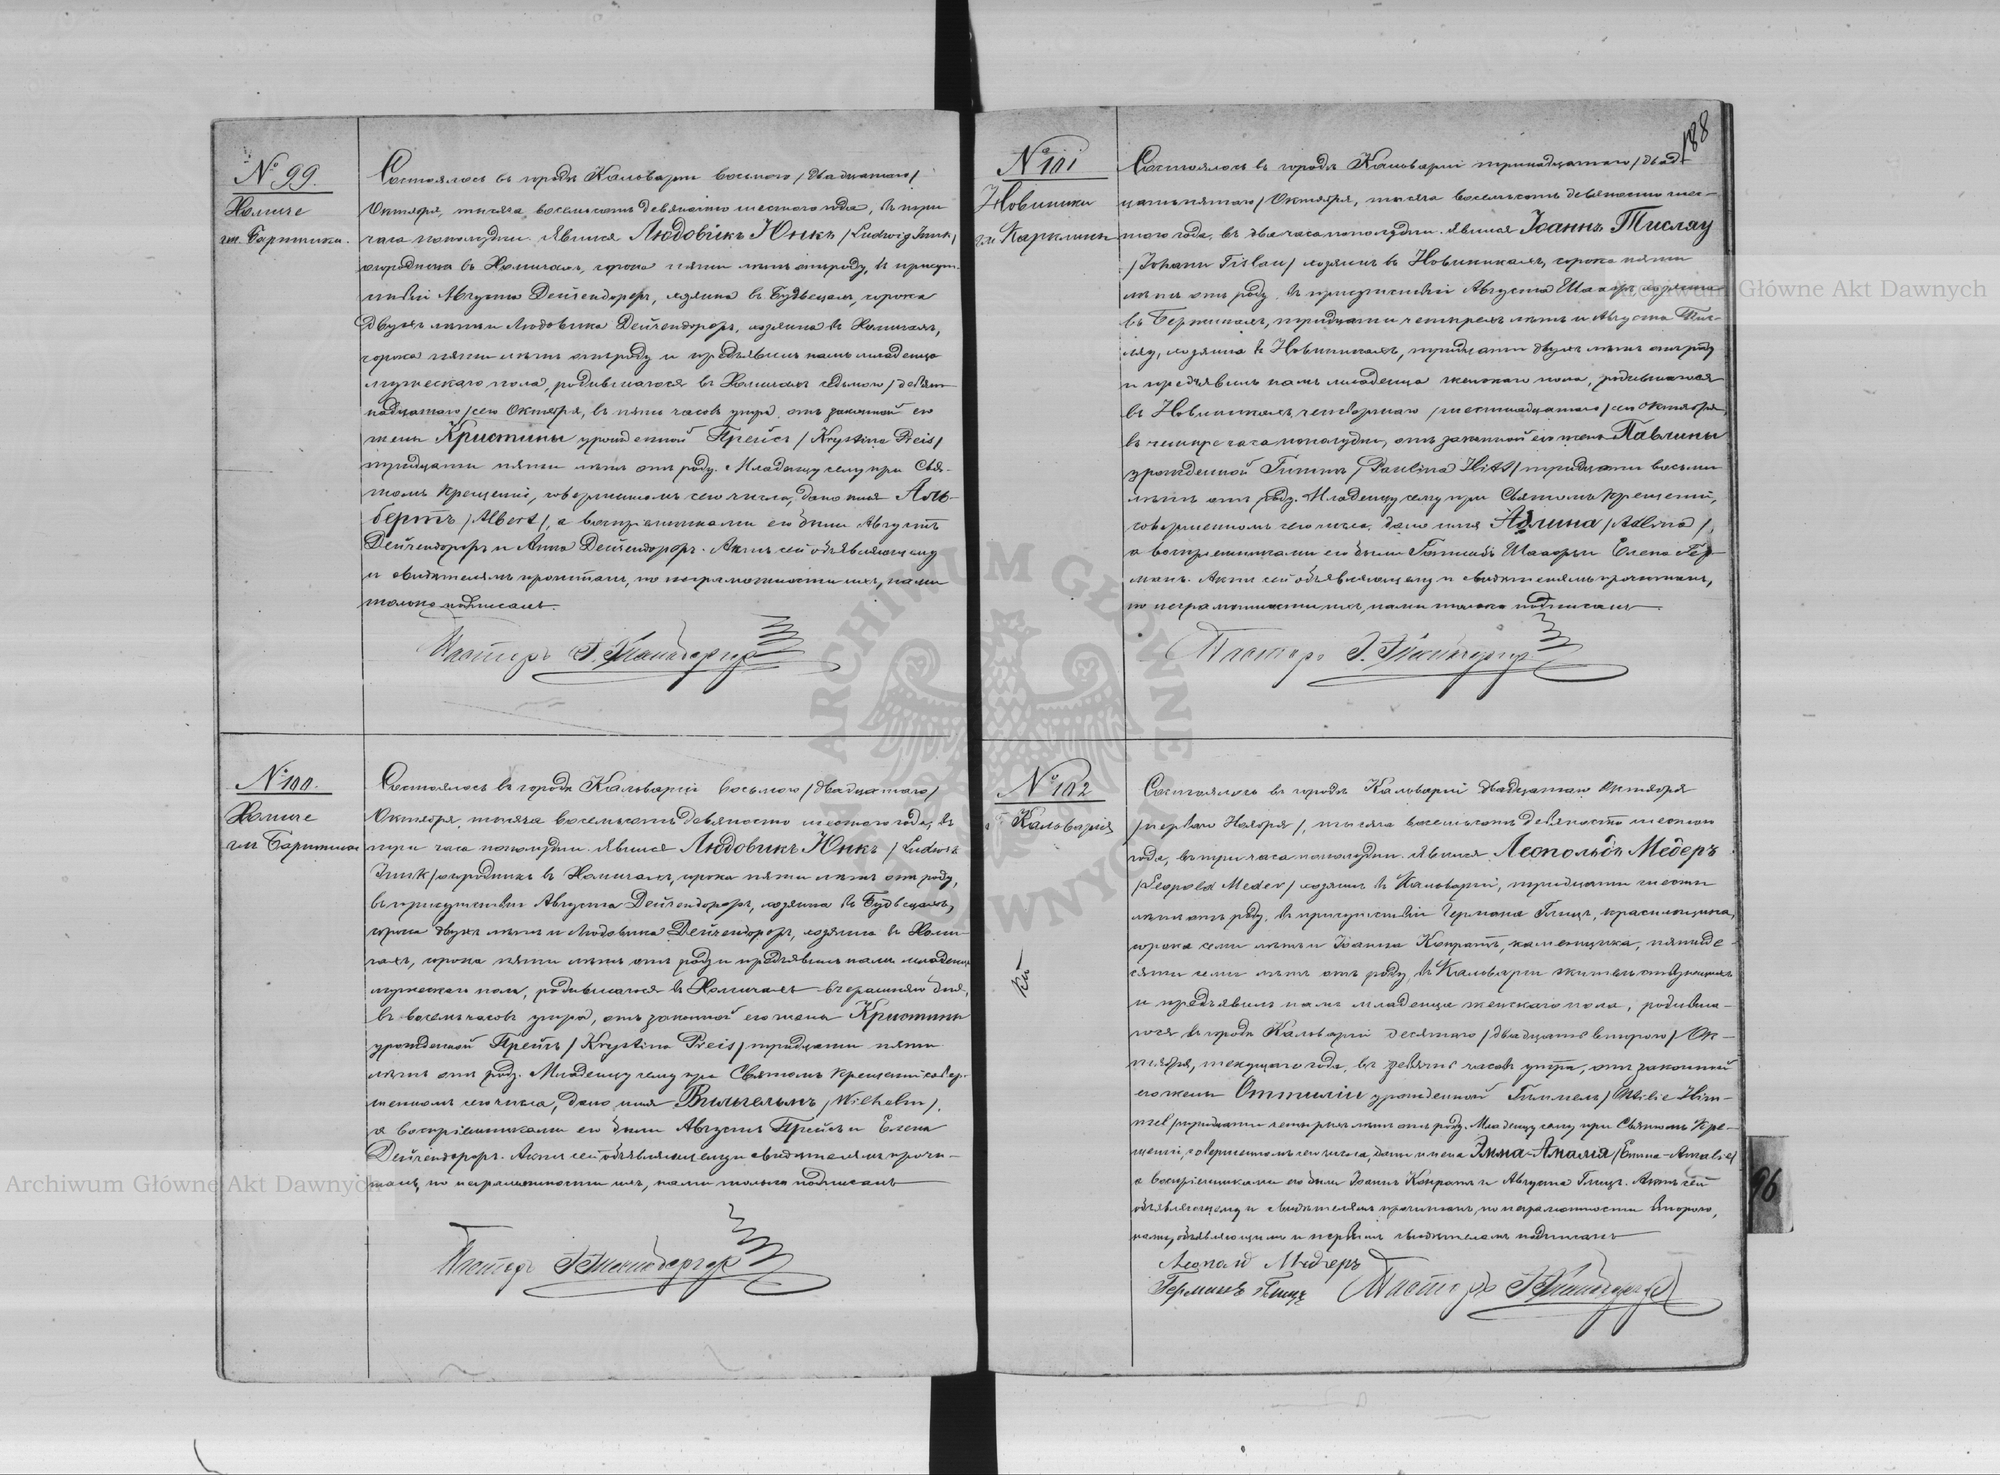 188
№ 99.
Хомиче
гм. Бартники.
Состоялось въ городѣ Кальваріи восьмого /двадцатаго/
Октября, тысяча восемьсотъ девяносто шестого года, въ три
часа пополудни. Явился Людовикъ Юнкъ /Ludwig Junk/
огородникъ въ Хомичахъ, сорока пяти лѣтъ отъ роду, въ присут-
ствіи Августа Дейчендорфъ, хозяина въ Будвецахъ, сорока
двухъ лѣтъ и Людовика Дейчендорфъ, хозяина въ Хомичахъ,
сорока пяти лѣтъ отъ роду и предъявилъ намъ младенца
мужескаго пола, родившагося въ Хомичахъ седьмого /девят-
надцатаго/ сего Октября, въ пять часовъ утра, отъ законной его
жены Кристины урожденной Прейсъ /Krystina Preis/
тридцати пяти лѣтъ отъ роду. Младенцу сему при Свя-
томъ Крещеніи, совершенномъ сего числа, дано имя Аль-
бертъ /Albert/, а воспріемниками его были Августъ
Дейчендорфъ и Анна Дейчендорфъ. Актъ сей объявляющему
и свидѣтелямъ прочитанъ, по неграмотности ихъ, нами
только подписанъ.
Пасторъ
№ 100.
Хомиче
гм Бартники
Состоялось въ городѣ Кальваріи восьмого /двадцатаго/
Октября тысяча восемьсотъ девяносто шестого года, въ
три часа пополудни. Явился Людовикъ Юнкъ /Ludwik
Junk/ огородникъ въ Хомичахъ, сорока пяти лѣтъ отъ роду,
въ присутствіи Августа Дейчендорфъ, хозяина въ Будвецахъ,
сорока двухъ лѣтъ и Людовика Дейчендорфъ, хозяина въ Хоми-
чахъ, сорока пяти лѣтъ отъ роду и предъявилъ намъ младенца
мужескаго пола, родившагося въ Хомичахъ вчерашняго дня,
въ восемь часовъ утра, отъ законной его жены Кристины
урожденной Прейсъ /Krystina Preis/ тридцати пяти
лѣтъ отъ роду. Младенцу сему при Святомъ Крещеніи совер-
шенномъ сего числа, дано имя Вильгельмъ /Wilhelm/,
а воспріемниками его были Августъ Прейсъ и Елена
Дейчендорфъ. Актъ сей объявляющему и свидѣтелямъ прочи-
танъ, по неграмотности ихъ, нами только подписанъ
Пасторъ
№ 101
Новиники
гм Карклины
Состоялось въ городѣ Кальваріи тринадцатаго /двад-
цать пятаго/ Октября, тысяча восемьсотъ девяносто шес-
того года, въ два часа пополудни. Явился Іоаннъ Тислау
/Johann Tislau/ хозяинъ въ Новиникахъ, сорока пяти
лѣтъ отъ роду, въ присутствіи Августа Шааръ хозяина
въ тридцати четырехъ лѣтъ и Августа Тис-
лау, хозяина въ Новиникахъ, тридцати двухъ лѣтъ отъ роду
и предъявилъ намъ младенца женскаго пола, родившагося
въ Новиникахъ четвертаго /шестнадцатаго/ сего Октября
въ четыре часа пополудни, отъ законной его жены Павлины
урожденной /Paulina Hitt/ тридцати восьми
лѣтъ отъ роду. Младенцу сему при Святомъ Крещеніи,
совершенномъ сего числа, дано имя Адлина /Adlina/,
а воспріемниками его были Готлибъ и Елена Гер-
манъ. Актъ сей объявляющему и свидѣтелямъ прочитанъ,
по неграмотности ихъ, нами только подписанъ
Пасторъ
№ 102
Кальварія
Состоялось въ городѣ Кальваріи двадцатаго Октября
/перваго Ноября/, тысяча восемьсотъ девяносто шестого
года, въ три часа пополудни. Явился Леопольдъ Медеръ
/Leopold Meder/ хозяинъ въ Кальваріи, тридцати шести
лѣтъ отъ роду, въ присутствіи Германа Глицъ, красильщика,
сорока семи лѣтъ и Іоанна Конратъ, каменщика, пятиде-
сяти семи лѣтъ отъ роду, въ Кальваріи
и предъявилъ намъ младенца женскаго пола, родивша-
гося въ городѣ Кальваріи десятаго /двадцать второго/ Ок-
тября, текущаго года, въ девять часовъ утра, отъ законной
его жены Оттиліи урожденной Гиммель /Otilie Him-
mel/ тридцати четырехъ лѣтъ отъ роду. Младенцу сему при Святомъ Кре-
щеніи, совершенномъ сего числа, даны имена Эмма-Амалія /Emma-Amalie/
а воспріемниками его были Іоаннъ Конратъ и Августа Глицъ. Актъ сей
объявляющему и свидѣтелямъ прочитанъ, по неграмотности второго,
нами, объявляющимъ и первымъ свидѣтелемъ подписанъ
Леополд Медеръ
Германъ Глицъ Пасторъ
96
Archiwum Główne Akt Dawnych
Archiwum Główne Akt Dawnych
ARCHIWUM GŁÓWNE
AKT DAWNYCH